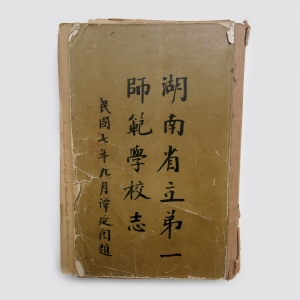 湖南省立第一
師範學校志
民國七年九月譚延闓題